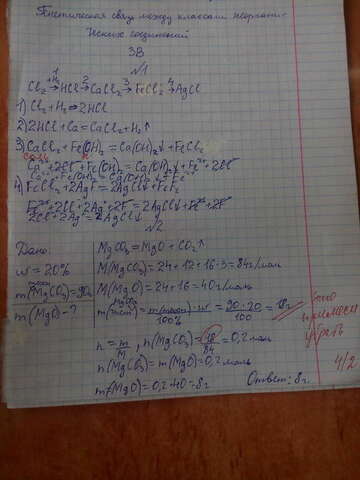 Генетическая связь между классами неоргани-
ческих соединений
3В
№1
Cl₂ →(+H₂) 1 HCl →2 CaCl₂ →3 FeCl₂ →4 AgCl
1) Cl₂ + H₂ = 2HCl
2) 2HCl + Ca = CaCl₂ + H₂↑
3) CaCl₂ + Fe(OH)₂ = Ca(OH)₂↓ + FeCl₂
Ca²⁺ + 2Cl⁻ + Fe(OH)₂ = Ca(OH)₂↓ + Fe²⁺ + 2Cl⁻
Ca²⁺ + Fe(OH)₂ = Ca(OH)₂↓ + Fe²⁺
4) FeCl₂ + 2AgF = 2AgCl↓ + FeF₂
Fe²⁺ + 2Cl⁻ + 2Ag⁺ + 2F⁻ = 2AgCl↓ + Fe²⁺ + 2F⁻
2Cl⁻ + 2Ag⁺ = 2AgCl↓
№2
Дано:
w = 20%
m(MgCO₃) = 90г
m(MgO) - ?
MgCO₃ = MgO + CO₂↑
M(MgCO₃) = 24 + 12 + 16·3 = 84г/моль
M(MgO) = 24 + 16 = 40г/моль
= 90·20/100 = 18г
n = m/M, n(MgCO₃) = 18/84 = 0,2моль
n(MgCO₃) = n(MgO) = 0,2моль
m(MgO) = 0,2·40 = 8г
Ответ: 8г.
примеси
убрать
4/2